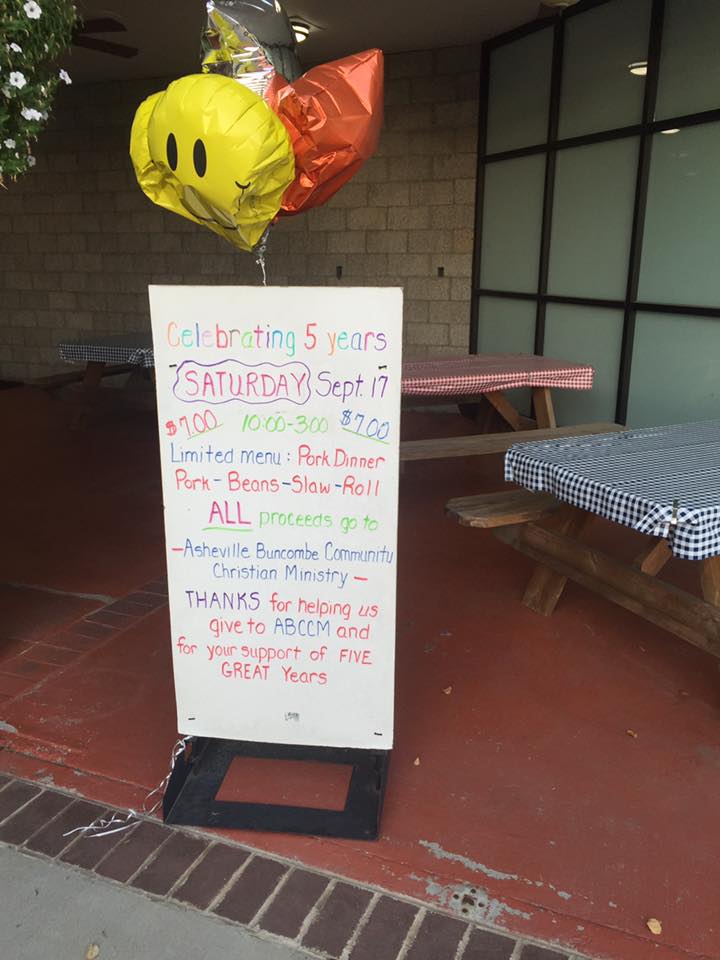 Celebrating 5 years
SATURDAY Sept. 17
$7.00 10:00-3:00 $7.00
Limited menu: Pork Dinner
Pork-Beans-Slaw-Roll
ALL proceeds go to
-Asheville Buncombe Community
Christian Ministry-
THANKS for helping us
give to ABCCM and
for your support of FIVE
GREAT Years